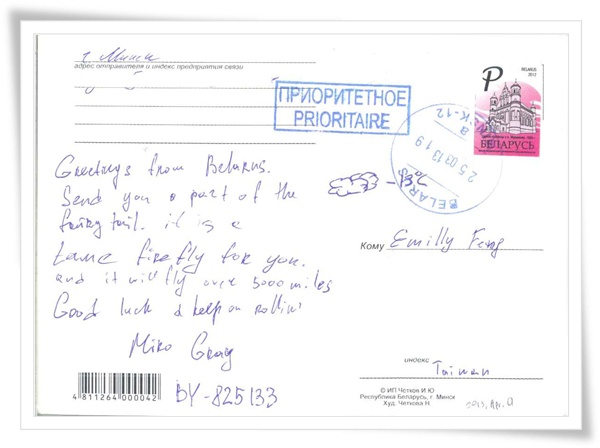 г. Минск
адрес отправителя и индекс предприятия связи
ПРИОРИТЕТНОЕ
PRIORITAIRE
P
BELARUS
2012
БЕЛАРУСЬ
BELARUS
MINSK-12
25 03 13 19
a
Greetings from Belarus.
Send you a part of the
fairy tail. it is a
tame firefly for you.
and it will fly over 5000 miles
Good luck & keep on rollin'
Miko Gray
BY-825133
Кому Emilly Feng
индекс
Taiwan
4 811264 000042
© ИП Четков И.Ю
Республика Беларусь, г. Минск
Худ. Четкова Н.
2013, Apr. 9